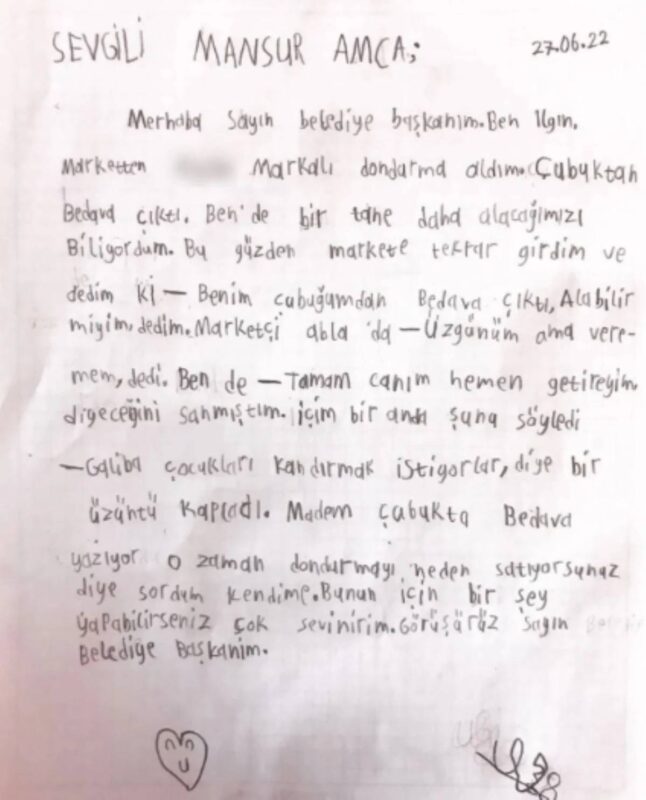 SEVGİLİ MANSUR AMCA;
27.06.22
Merhaba Sayın belediye başkanım. Ben Ilgın.
Marketten Markalı dondarma aldım. Çubuktan
Bedava çıktı. Ben'de bir tane daha alacağımızı
Biliyordum. Bu yüzden markete tekrar girdim ve
dedim ki — Benim çubuğumdan Bedava çıktı, Alabilir
miyim, dedim. Marketçi abla 'da — Üzgünüm ama vere-
mem, dedi. Ben de — Tamam canım hemen getireyim.
diyeceğini sanmıştım. içim bir anda şuna söyledi
— Galiba çocukları kandırmak istiyorlar, diye bir
üzüntü kapladı. Madem çubukta Bedava
yazıyor o zaman dondurmayı neden satıyorsunuz
diye sordum kendime. Bunun için bir şey
yapabilirseniz çok sevinirim. Görüşürüz Sayın
Belediye Başkanım.